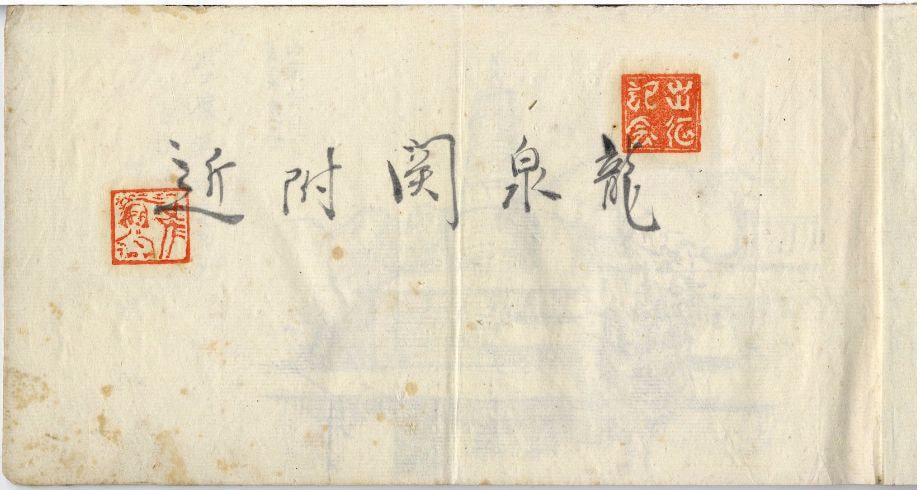 出征
記念
龍泉関附近